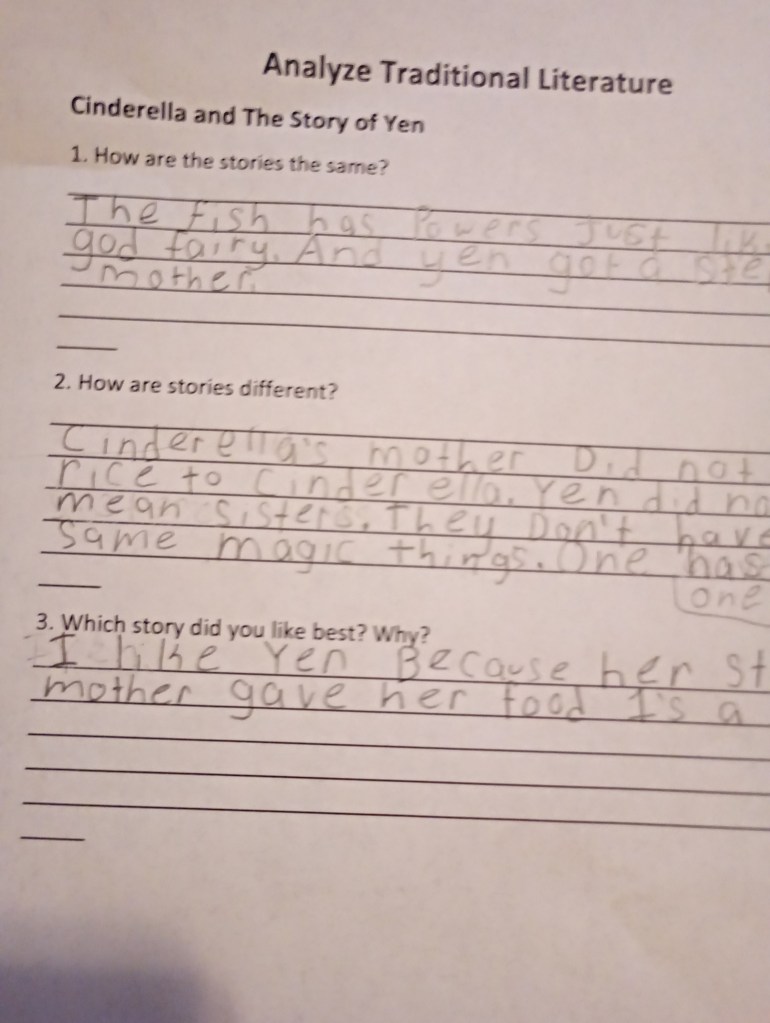 Analyze Traditional Literature
Cinderella and The Story of Yen
1. How are the stories the same?
The fish has Powers Just lik
god fairy. And yen got a ste
mother.
2. How are stories different?
Cinderella's mother Did not
rice to Cinderella. Yen did no
mean sisters. They Don't have
same magic things. One has
one
3. Which story did you like best? Why?
I like Yen Because her st
mother gave her food I's a